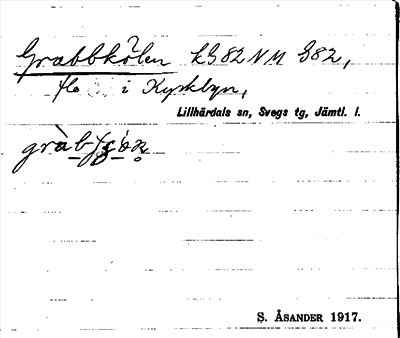 Grabbkölen LG82NM G82,
flo i Kyrkbyn,
Lillhärdals sn, Svegs tg, Jämtl. l.
S. ÅSANDER 1917.